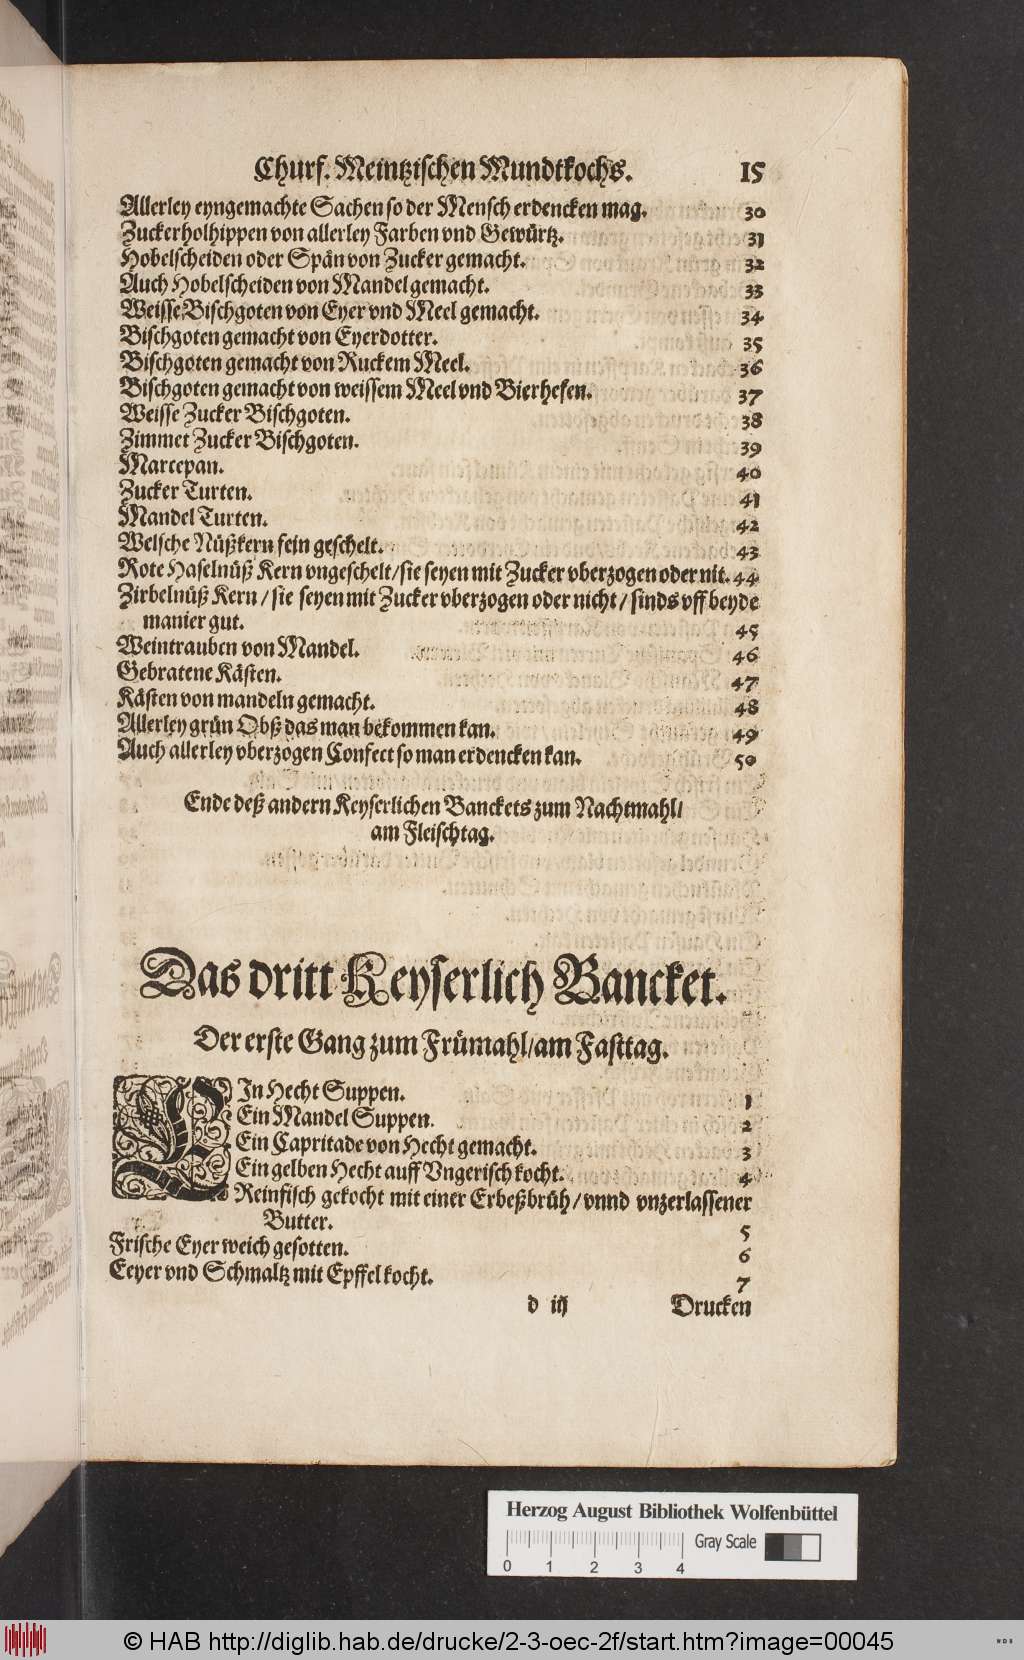 Churf. Meintzischen Mundtkochs. 15
Allerley eyngemachte Sachen so der Mensch erdencken mag. 30
Zuckerholhippen von allerley Farben vnd Gewürtz. 31
Hobelscheiden oder Spän von Zucker gemacht. 32
Auch Hobelscheiden von Mandel gemacht. 33
Weisse Bischgoten von Eyer vnd Meel gemacht. 34
Bischgoten gemacht von Eyerdotter. 35
Bischgoten gemacht von Ruckem Meel. 36
Bischgoten gemacht von weissem Meel vnd Bierhefen. 37
Weisse Zucker Bischgoten. 38
Zimmet Zucker Bischgoten. 39
Marcepan. 40
Zucker Turten. 41
Mandel Turten. 42
Welsche Nüßkern fein geschelt. 43
Rote Haselnüß Kern vngeschelt/ sie seyen mit Zucker vberzogen oder nit. 44
Zirbelnüß Kern/ sie seyen mit Zucker vberzogen oder nicht/ sinds vff beyde
manier gut. 45
Weintrauben von Mandel. 46
Gebratene Kästen. 47
Kästen von mandeln gemacht. 48
Allerley grün Obß das man bekommen kan. 49
Auch allerley vberzogen Confect so man erdencken kan. 50
Ende deß andern Keyserlichen Banckets zum Nachtmahl/
am Fleischtag.
Das dritt Keyserlich Bancket.
Der erste Gang zum Frümahl/ am Fasttag.
EIn Hecht Suppen. 1
Ein Mandel Suppen. 2
Ein Capritade von Hecht gemacht. 3
Ein gelben Hecht auff Vngerisch kocht. 4
Reinfisch gekocht mit einer Erbeßbrüh/ vnnd vnzerlassener
Butter. 5
Frische Eyer weich gesotten. 6
Eeyer vnd Schmaltz mit Epffel kocht. 7
d iij Drucken
Herzog August Bibliothek Wolfenbüttel
Gray Scale
0 1 2 3 4
© HAB http://diglib.hab.de/drucke/2-3-oec-2f/start.htm?image=00045